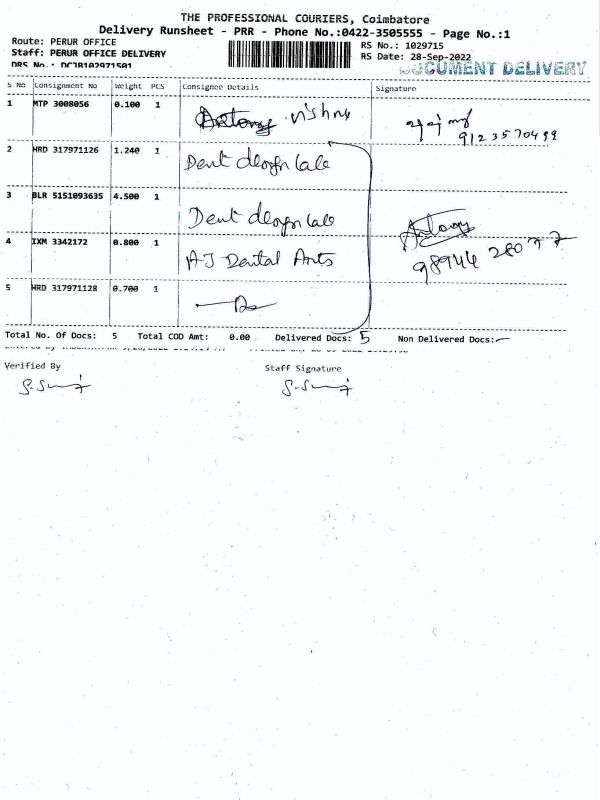 THE PROFESSIONAL COURIERS, Coimbatore
Delivery Runsheet - PRR - Phone No.:0422-3505555 - Page No.:1
Route: PERUR OFFICE
RS No.: 1029715
Staff: PERUR OFFICE DELIVERY
RS Date: 28-Sep-2022
DRS No.: DCJB102971501
DOCUMENT DELIVERY
S No Consignment No Weight PCS Consignee Details Signature
1 MTP 3008056 0.100 1 vishnu
2 HRD 317971126 1.240 1 Dent design lab
3 BLR 5151093635 4.500 1 Dent design lab
Antony
4 IXM 3342172 0.800 1 AJ Dental Arts 98944 28077
5 HRD 317971128 0.700 1
Total No. Of Docs: 5 Total COD Amt: 0.00 Delivered Docs: 5 Non Delivered Docs:-
Verified By Staff Signature